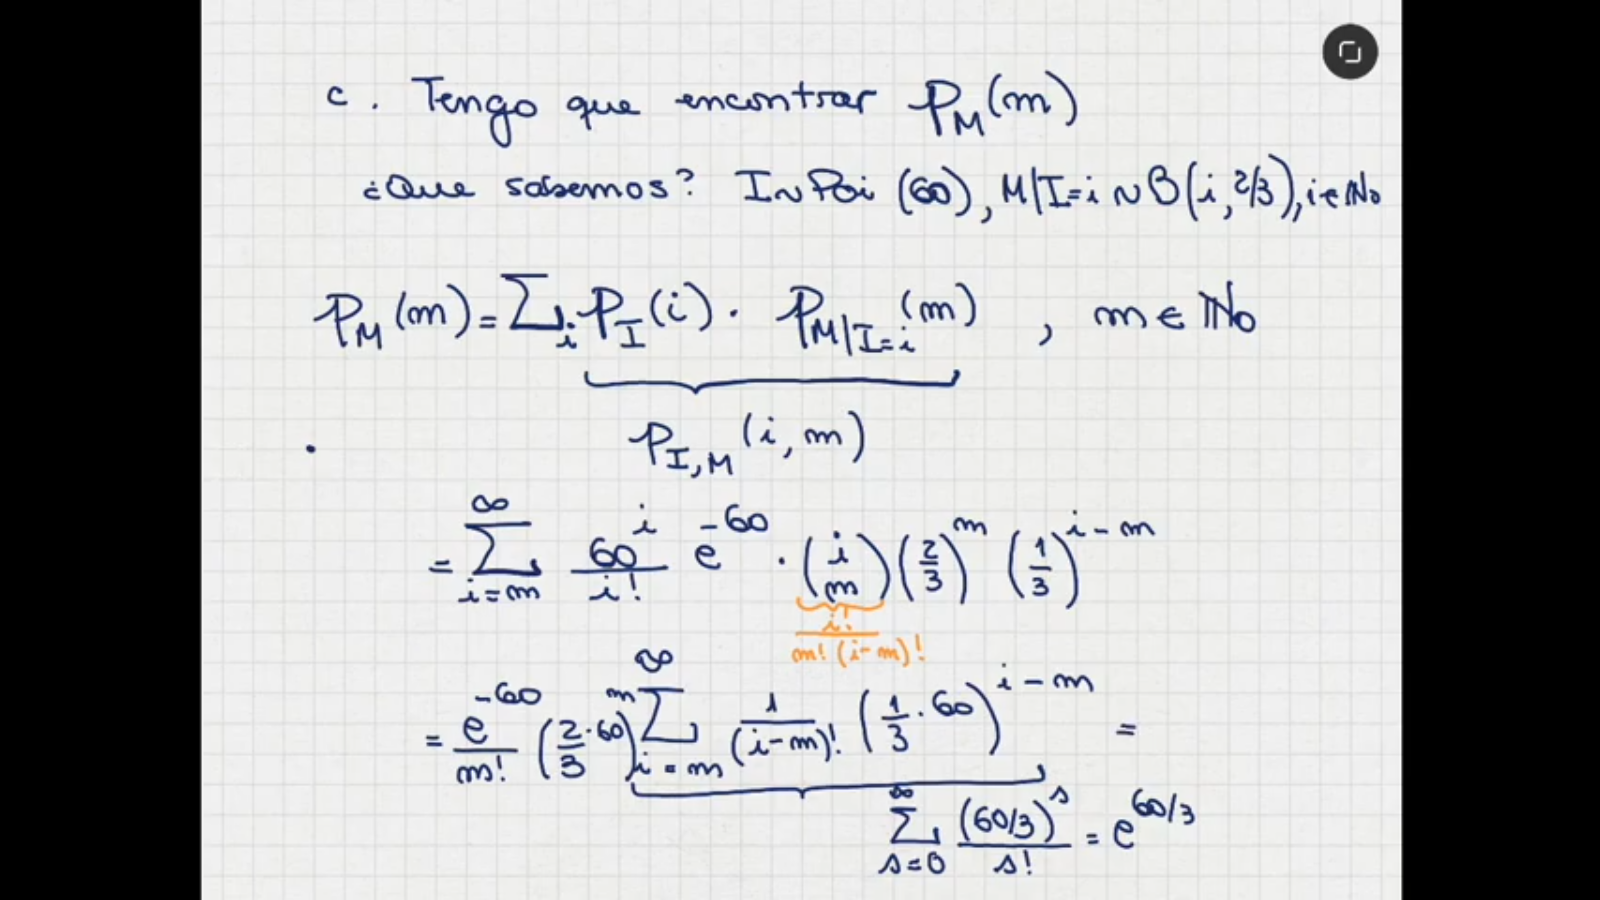 c. Tengo que encontrar P_M(m)
¿Que sabemos? I~Poi(60), M/I=i ~ B(i, 2/3), i∈ℕ₀
P_M(m) = Σ_i P_I(i) · P_{M|I=i}(m) , m ∈ ℕ₀
P_{I,M}(i, m)
= Σ_{i=m}^{∞} 60^i/i! e^{-60} · (i m) (2/3)^m (1/3)^{i-m}
i!/(m!(i-m)!)
= e^{-60}/m! (2/3·60)^m Σ_{i=m}^{∞} 1/(i-m)! (1/3·60)^{i-m} =
Σ_{s=0}^{∞} (60/3)^s/s! = e^{60/3}